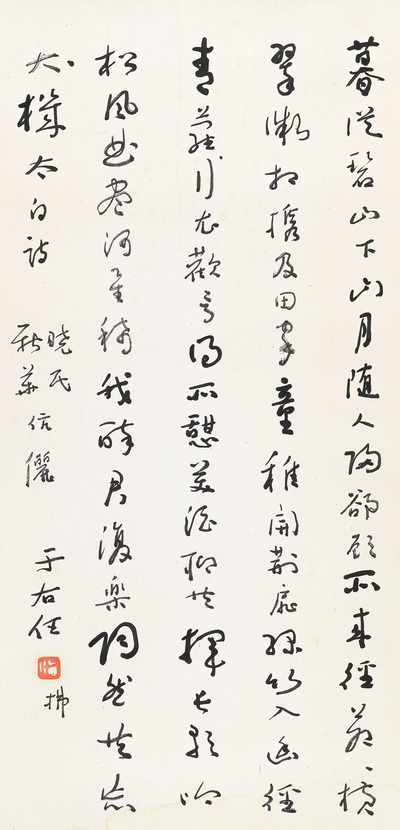 暮從碧山下山月隨人歸卻顧所來徑蒼〻橫
翠微相攜及田家童稚開荊扉綠竹入幽徑
青蘿行衣歡言得所憩美酒聊共揮長歌吟
松風曲盡河星稀我醉君復樂陶然共忘
機太白詩
曉民
秋華伉儷
于右任
拂